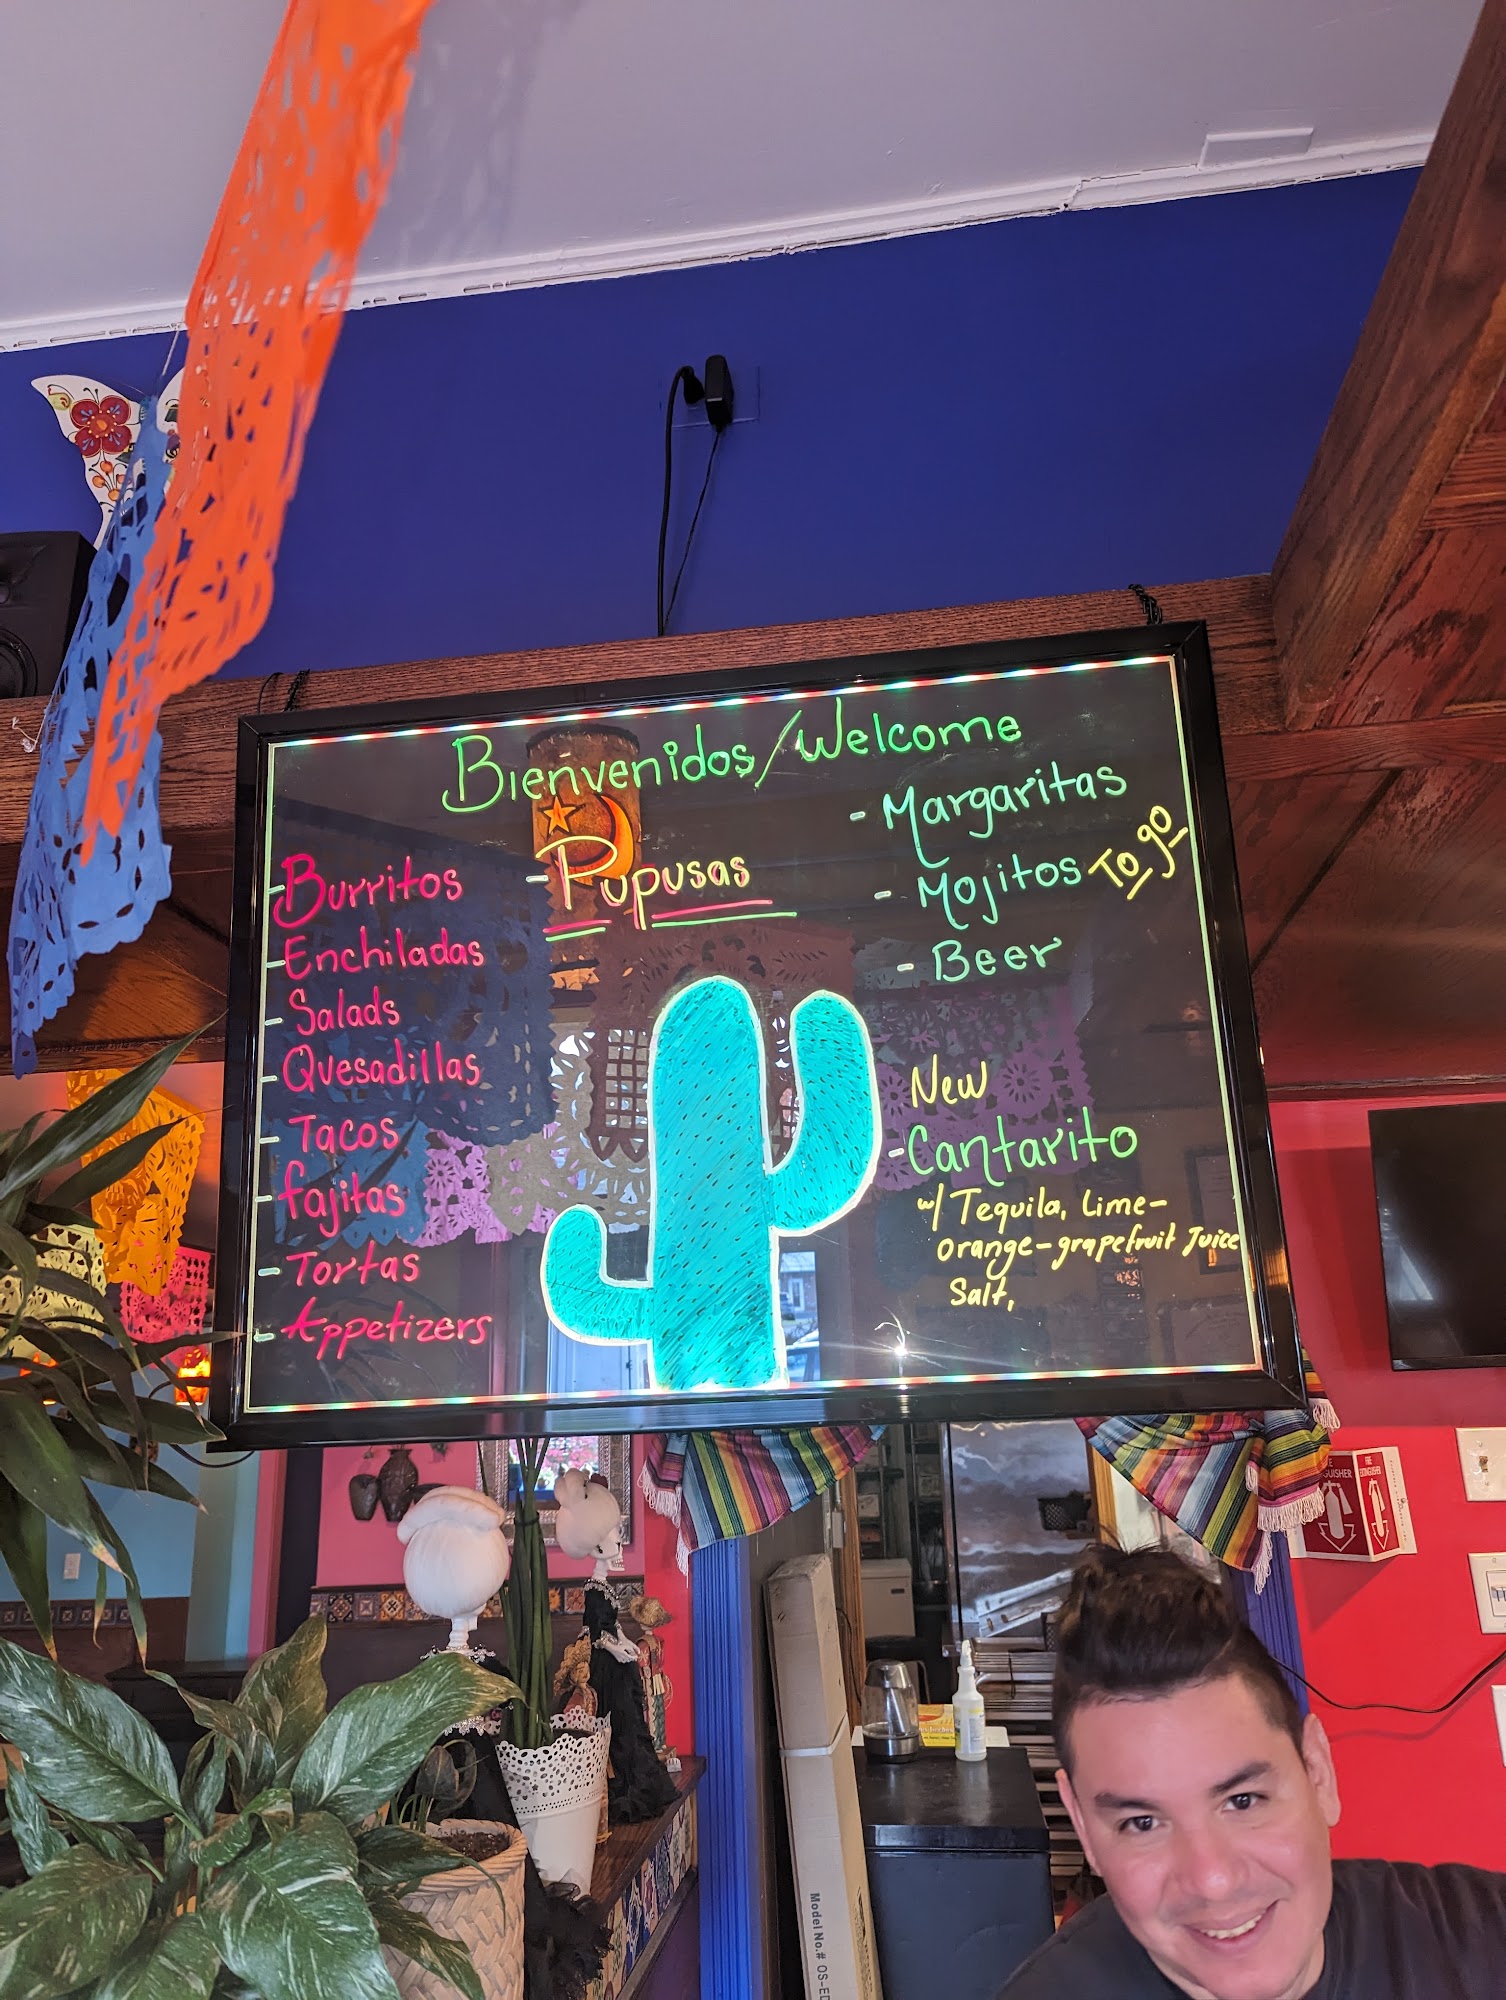 Bienvenidos/Welcome
- Burritos
- Enchiladas
- Salads
- Quesadillas
- Tacos
- fajitas
- Tortas
- Appetizers
- Pupusas
- Margaritas
- Mojitos
To go
- Beer
New
- Cantarito
w/ Tequila, Lime-
orange-grapefruit Juice
Salt,
GUISHER
FIRE
EXTINGUISHER
Model No.# OS-ED